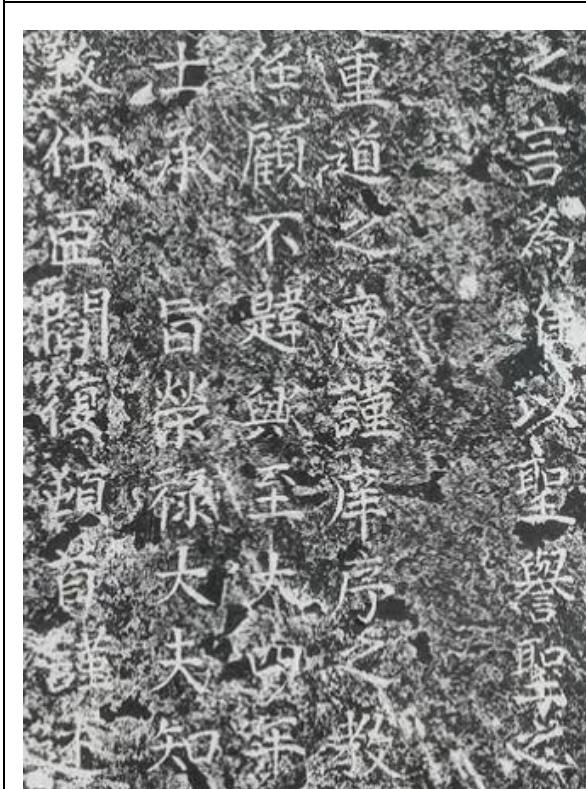 之言為以聖譽聖之
重道之意謹庠序之教
任顧不韙歟至大四年
士承 旨榮祿大夫知
致仕臣閻復頓首謹